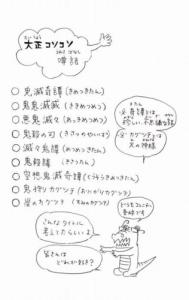 たいしょう
大正コソコソ
うわさ ばなし
噂話
○ 鬼滅奇譚 (きめつきたん)
○ 鬼鬼滅滅 (ききめつめつ)
○ 悪鬼滅々 (あっきめつめつ)
○ 鬼殺の刃 (きさつのやいば)
○ 滅々鬼譚 (めつめつきたん)
○ 鬼殺譚 (きさつたん)
○ 空想鬼滅奇譚 (くうそうきめつきたん)
○ 鬼狩りカグツチ (おにがりカグツチ)
○ 炭のカグツチ (すみのカグツチ)
※ 奇譚とは、
珍しい、不思議な話
※ カグツチとは
火の神様
どうもコンニチハ
吾峠です
こんなタイトル
考えてたらしいよ
皆さんは
どれが好き?